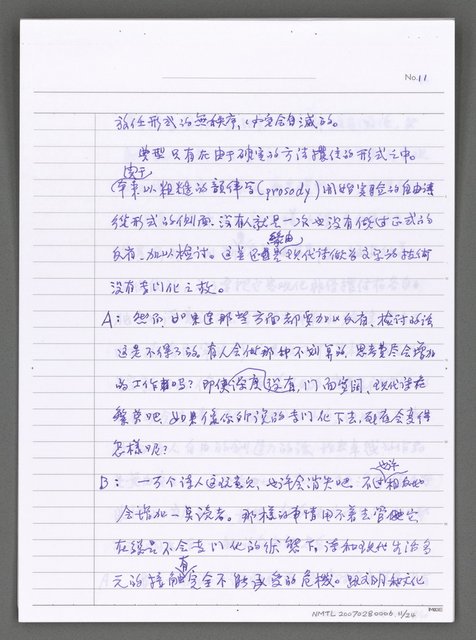 No.11
放任形式的無秩序,也會自滅的。
典型只有在由于確定的方法 的形式之中。
由于
草率以粗糙的韻律學(prosody)開始實驗的自由詩
從形式的側面,沒有人就是一次也沒有做过正式的
緣由
反省、加以檢討。這是 現代詩做為文學的技術
沒有專门化之故。
A:然而,如果連那些方面都要加以反省、檢討的話
這是不得了的。有人会做那种不划算的,思考 尽会增加
的工作 嗎?即使深度沒有,门面寬闊,現代詩在
繁榮吧。如果像你所說的專门化下去,到底会变得
怎樣呢?
也許
B:一万个詩人這玩意儿,也許会消失吧。不过相反地
会增加一 讀者。那樣的事情用不著去管 它
在總是不会專门化的狀態下,詩和現代生活多
有
元的接触 完全不能承受的危機。跟文明和文化
NMTL 20070280006, 11/24